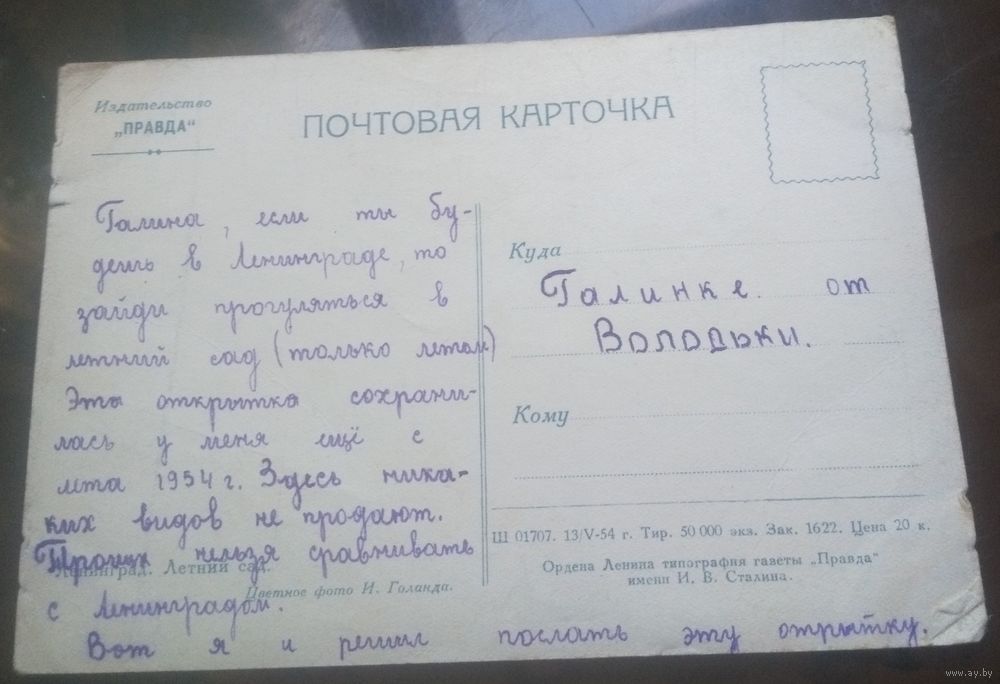 Издательство
„ПРАВДА“
ПОЧТОВАЯ КАРТОЧКА
Галина, если ты бу-
дешь в Ленинграде, то
зайди прогуляться в
летний сад (только летом)
Эта открытка сохрани-
лась у меня ещё с
лета 1954 г. Здесь ника-
ких видов не продают.
нельзя сравнивать
с Ленинградом.
Вот я и решил послать эту отрытку.
Ленинград. Летний сад.
Цветное фото И. Голанда.
Куда
Галинке от
Володьки.
Кому
Ш 01707. 13/V-54 г. Тир. 50 000 экз. Зак. 1622. Цена 20 к.
Ордена Ленина типография газеты „Правда“
имени И. В. Сталина.
www.ay.by